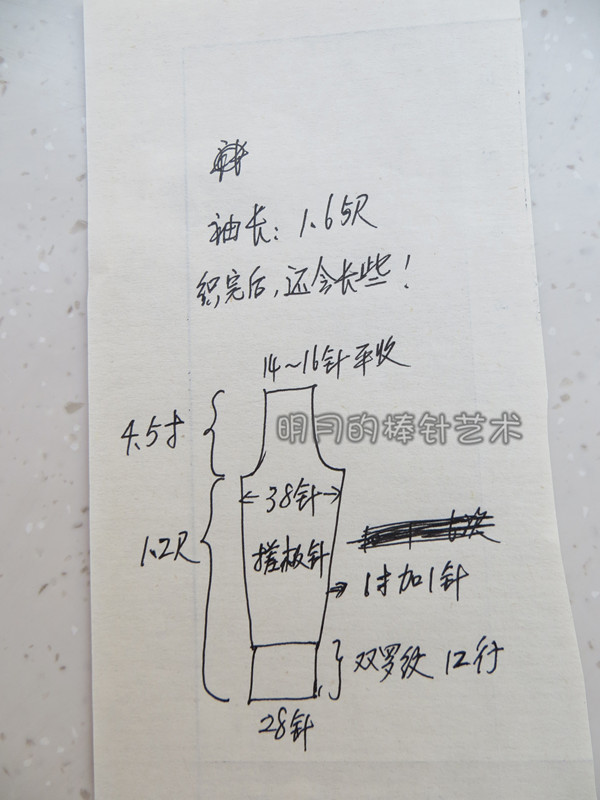 袖长：1.65尺
织完后，还会长些！
14～16针平收
4.5寸
明月的棒针艺术
38针
1.2尺
搓板针
1寸加1针
双罗纹 12行
28针